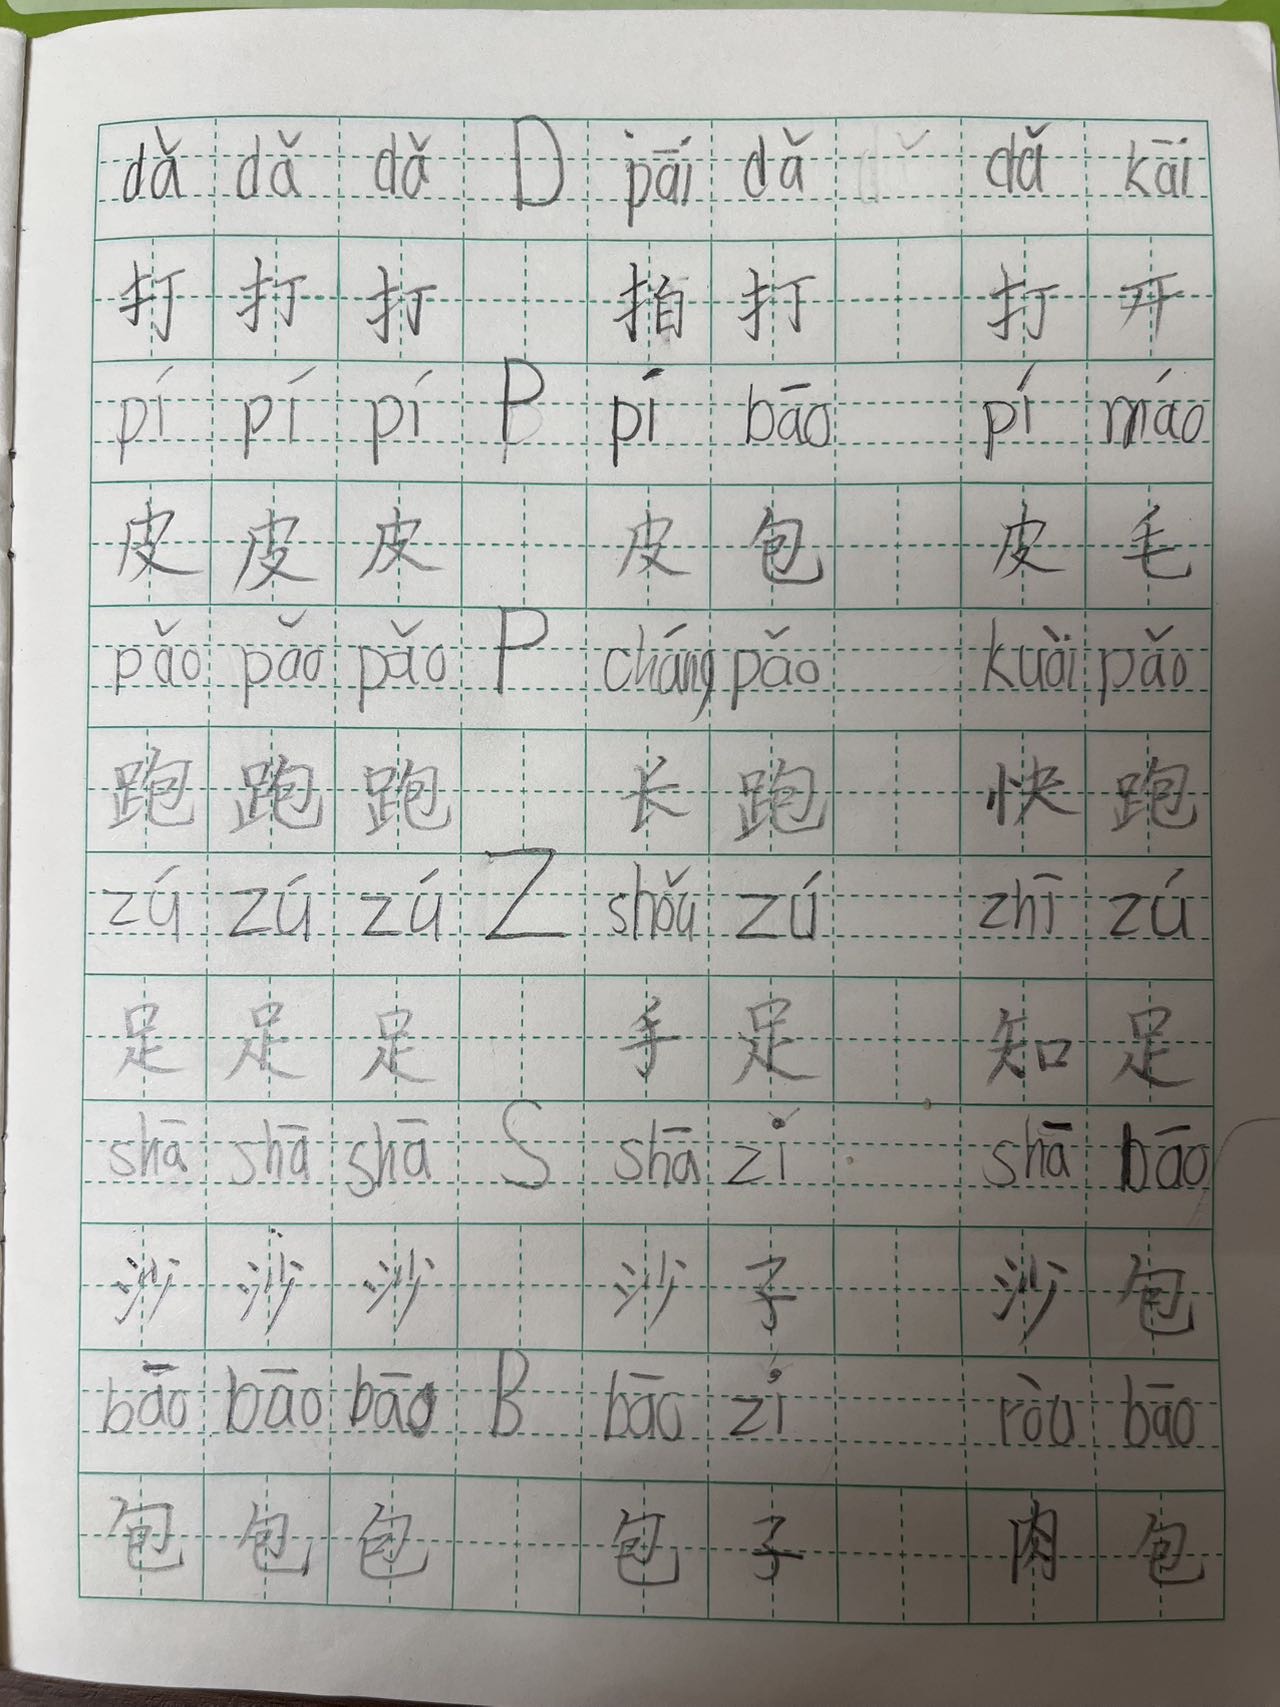 dǎ dǎ dǎ D pāi dǎ dǎ kāi
打 打 打 拍 打 打 开
pí pí pí P pí bāo pí máo
皮 皮 皮 皮 包 皮 毛
pǎo pǎo pǎo P cháng pǎo kuài pǎo
跑 跑 跑 长 跑 快 跑
zú zú zú Z shǒu zú zhī zú
足 足 足 手 足 知 足
shā shā shā S shā zǐ shā bāo
沙 沙 沙 沙 子 沙 包
bāo bāo bāo B bāo zi ròu bāo
包 包 包 包 子 肉 包